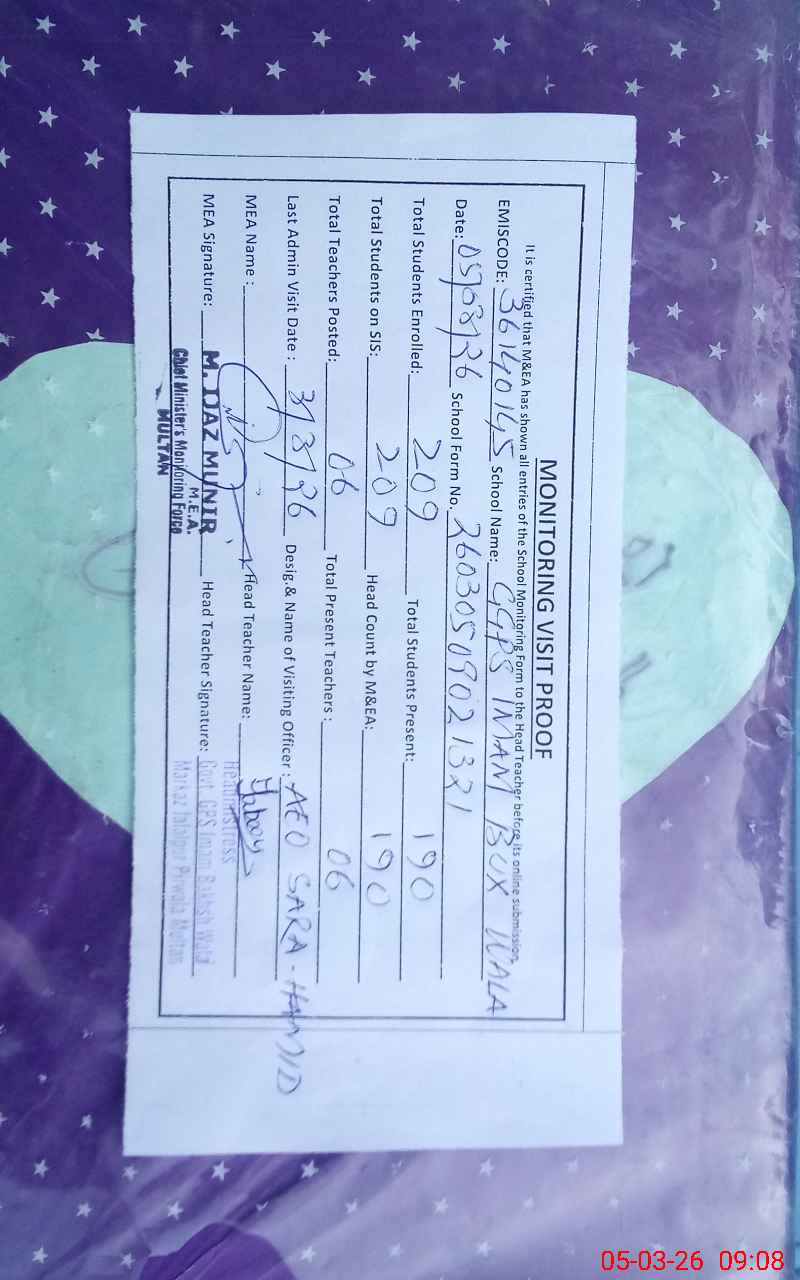 MONITORING VISIT PROOF
It is certified that M&EA has shown all entries of the School Monitoring Form to the Head Teacher before its online submission
EMISCODE: 36140145 School Name: GGPS IMAM BUX WALA
Date: 05/03/26 School Form No. 26030509021321
Total Students Enrolled: 209 Total Students Present: 190
Total Students on SIS: 209 Head Count by M&EA: 190
Total Teachers Posted: 06 Total Present Teachers : 06
Last Admin Visit Date : 3/3/26 Desig.& Name of Visiting Officer : AEO SARA-HAMID
MEA Name : Head Teacher Name:
Headmistress
MEA Signature: M. IJAZ MUNIR Head Teacher Signature: Govt. GPS Imam Bakhsh Wala
M.E.A.
Chief Minister's Monitoring Force Markaz Jalalpur Pirwala Multan
MULTAN
05-03-26 09:08